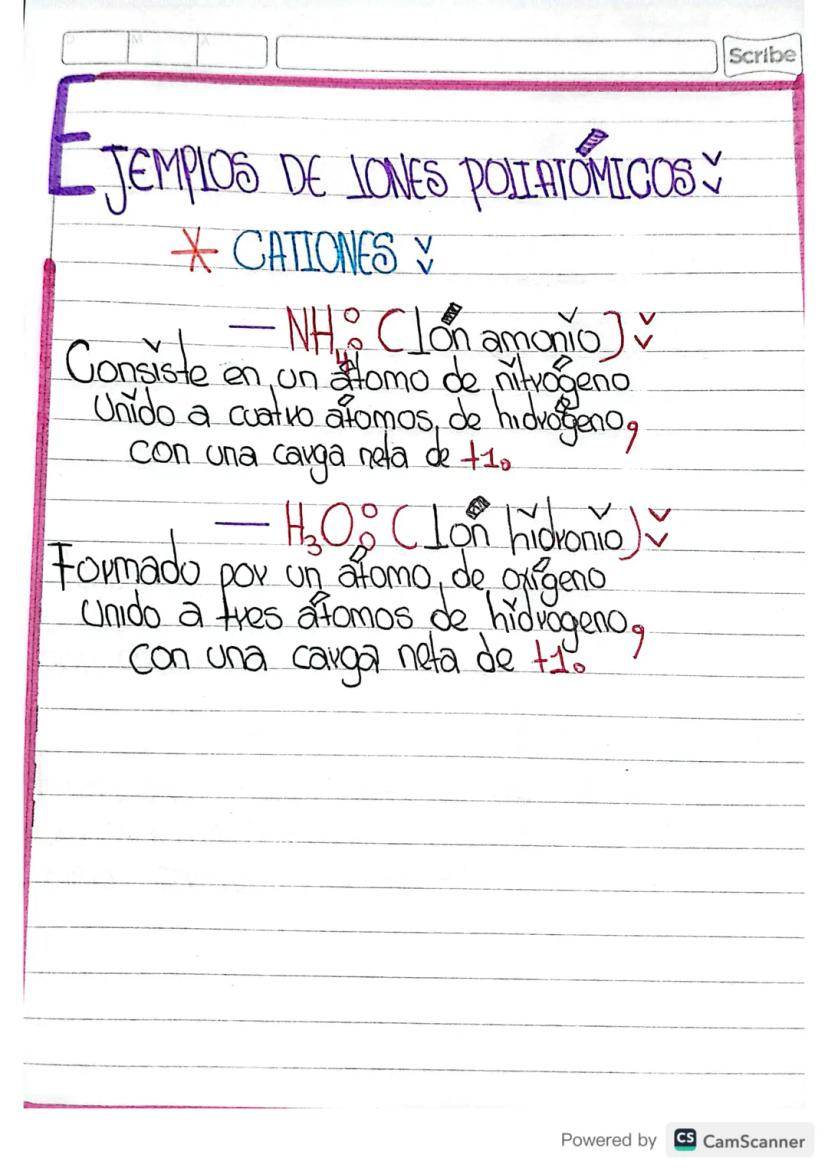 D M A Scribe
EJEMPLOS DE IONES POLIATÓMICOS:
* CATIONES:
— NH4: (Ión amonio):
Consiste en un átomo de nitrógeno
unido a cuatro átomos de hidrógeno,
con una carga neta de +1.
— H3O: (Ión hidronio):
Formado por un átomo de oxígeno
unido a tres átomos de hidrógeno,
con una carga neta de +1.
Powered by CS CamScanner